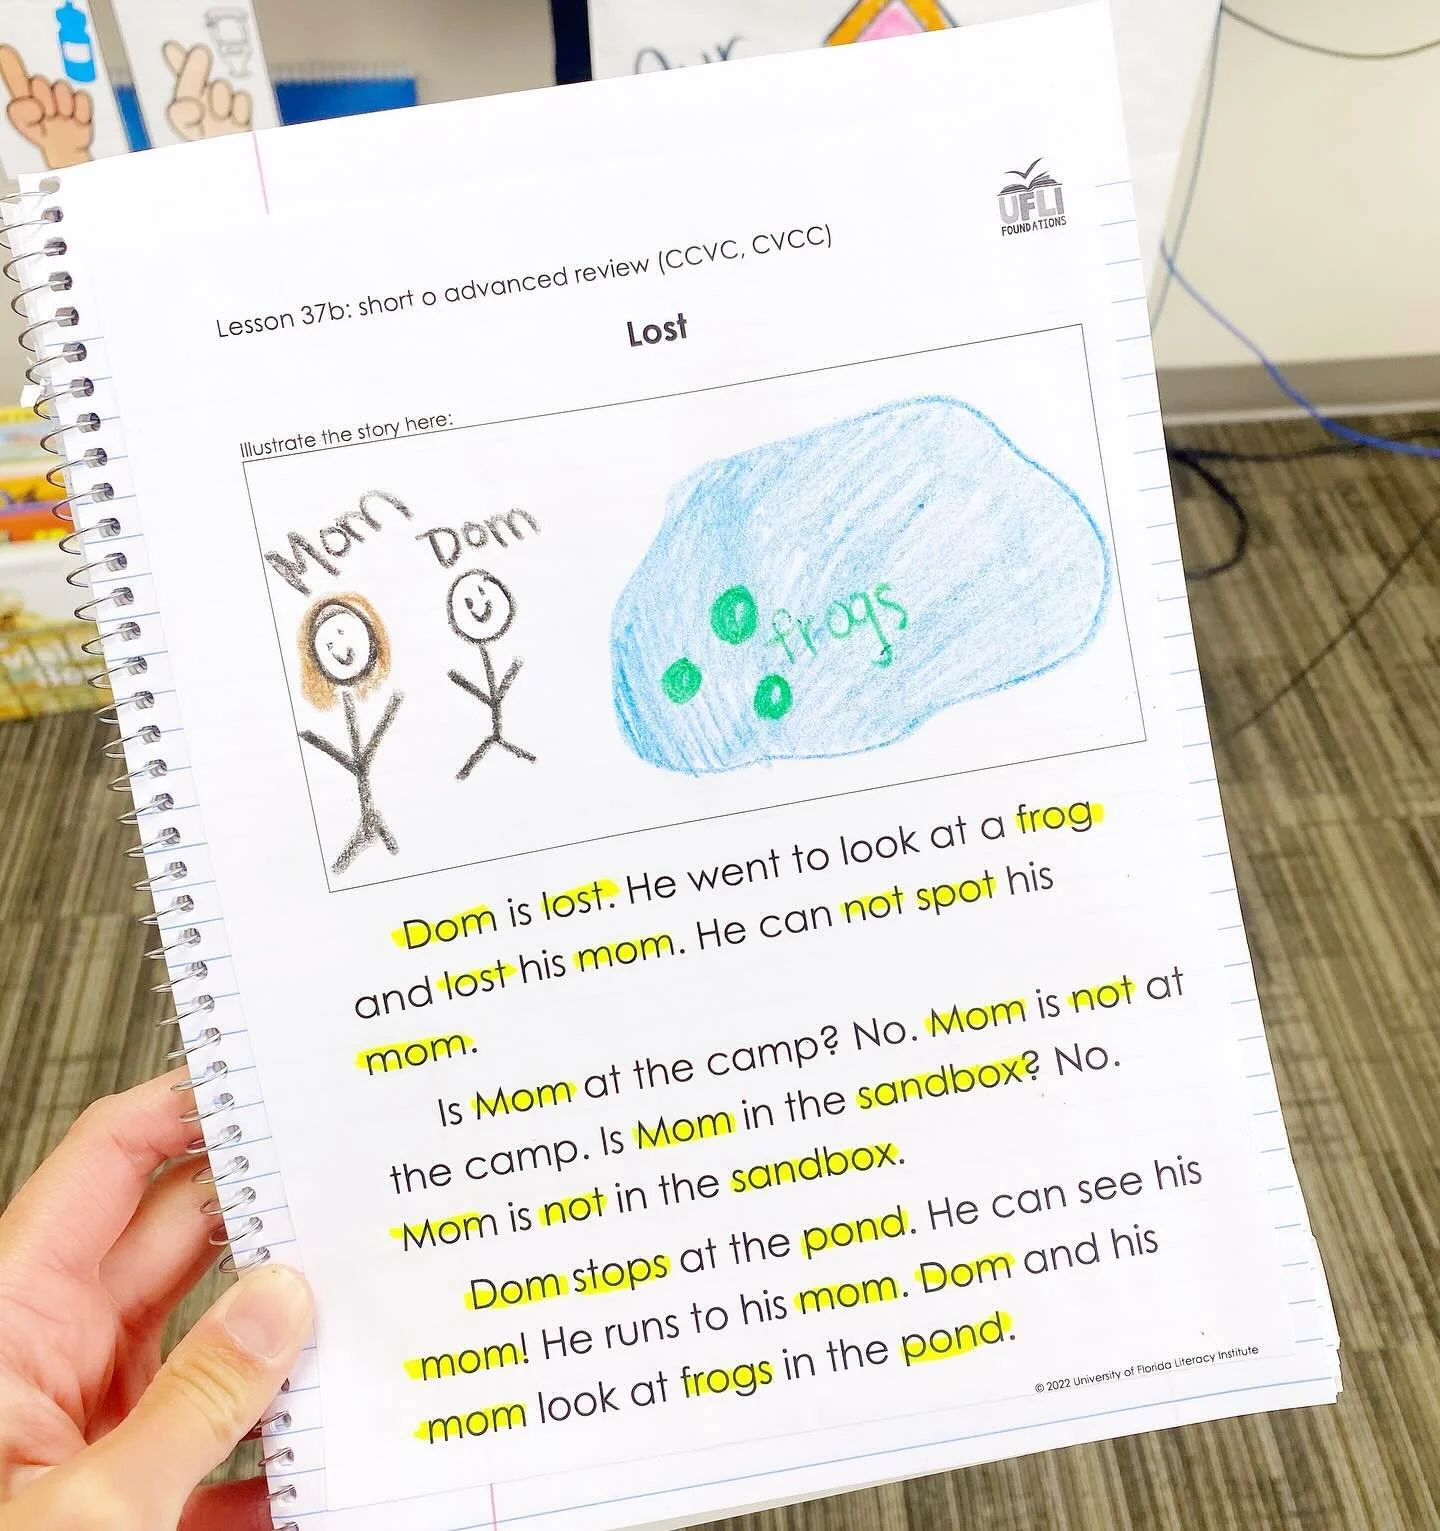 Our
UFLI
FOUNDATIONS
Lesson 37b: short o advanced review (CCVC, CVCC)
Lost
Illustrate the story here:
Mom
Dom
frogs
Dom is lost. He went to look at a frog
and lost his mom. He can not spot his
mom.
Is Mom at the camp? No. Mom is not at
the camp. Is Mom in the sandbox? No.
Mom is not in the sandbox.
Dom stops at the pond. He can see his
mom! He runs to his mom. Dom and his
mom look at frogs in the pond.
© 2022 University of Florida Literacy Institute